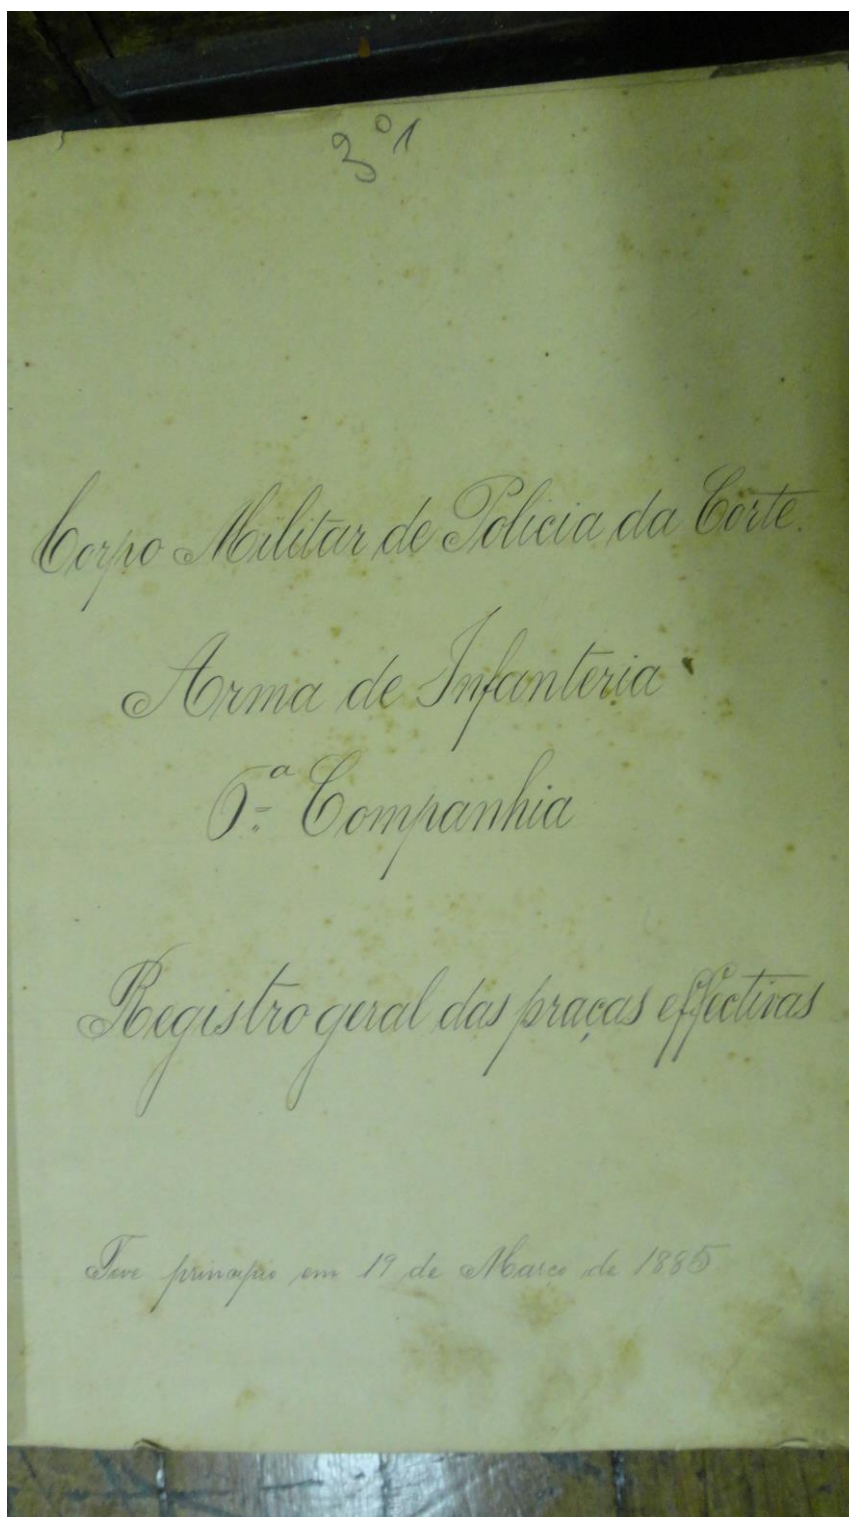 3º1
Corpo Militar de Policia da Côrte.
Arma de Infanteria
6ª Companhia
Registro geral das praças effectivas
Teve principio em 19 de Março de 1885